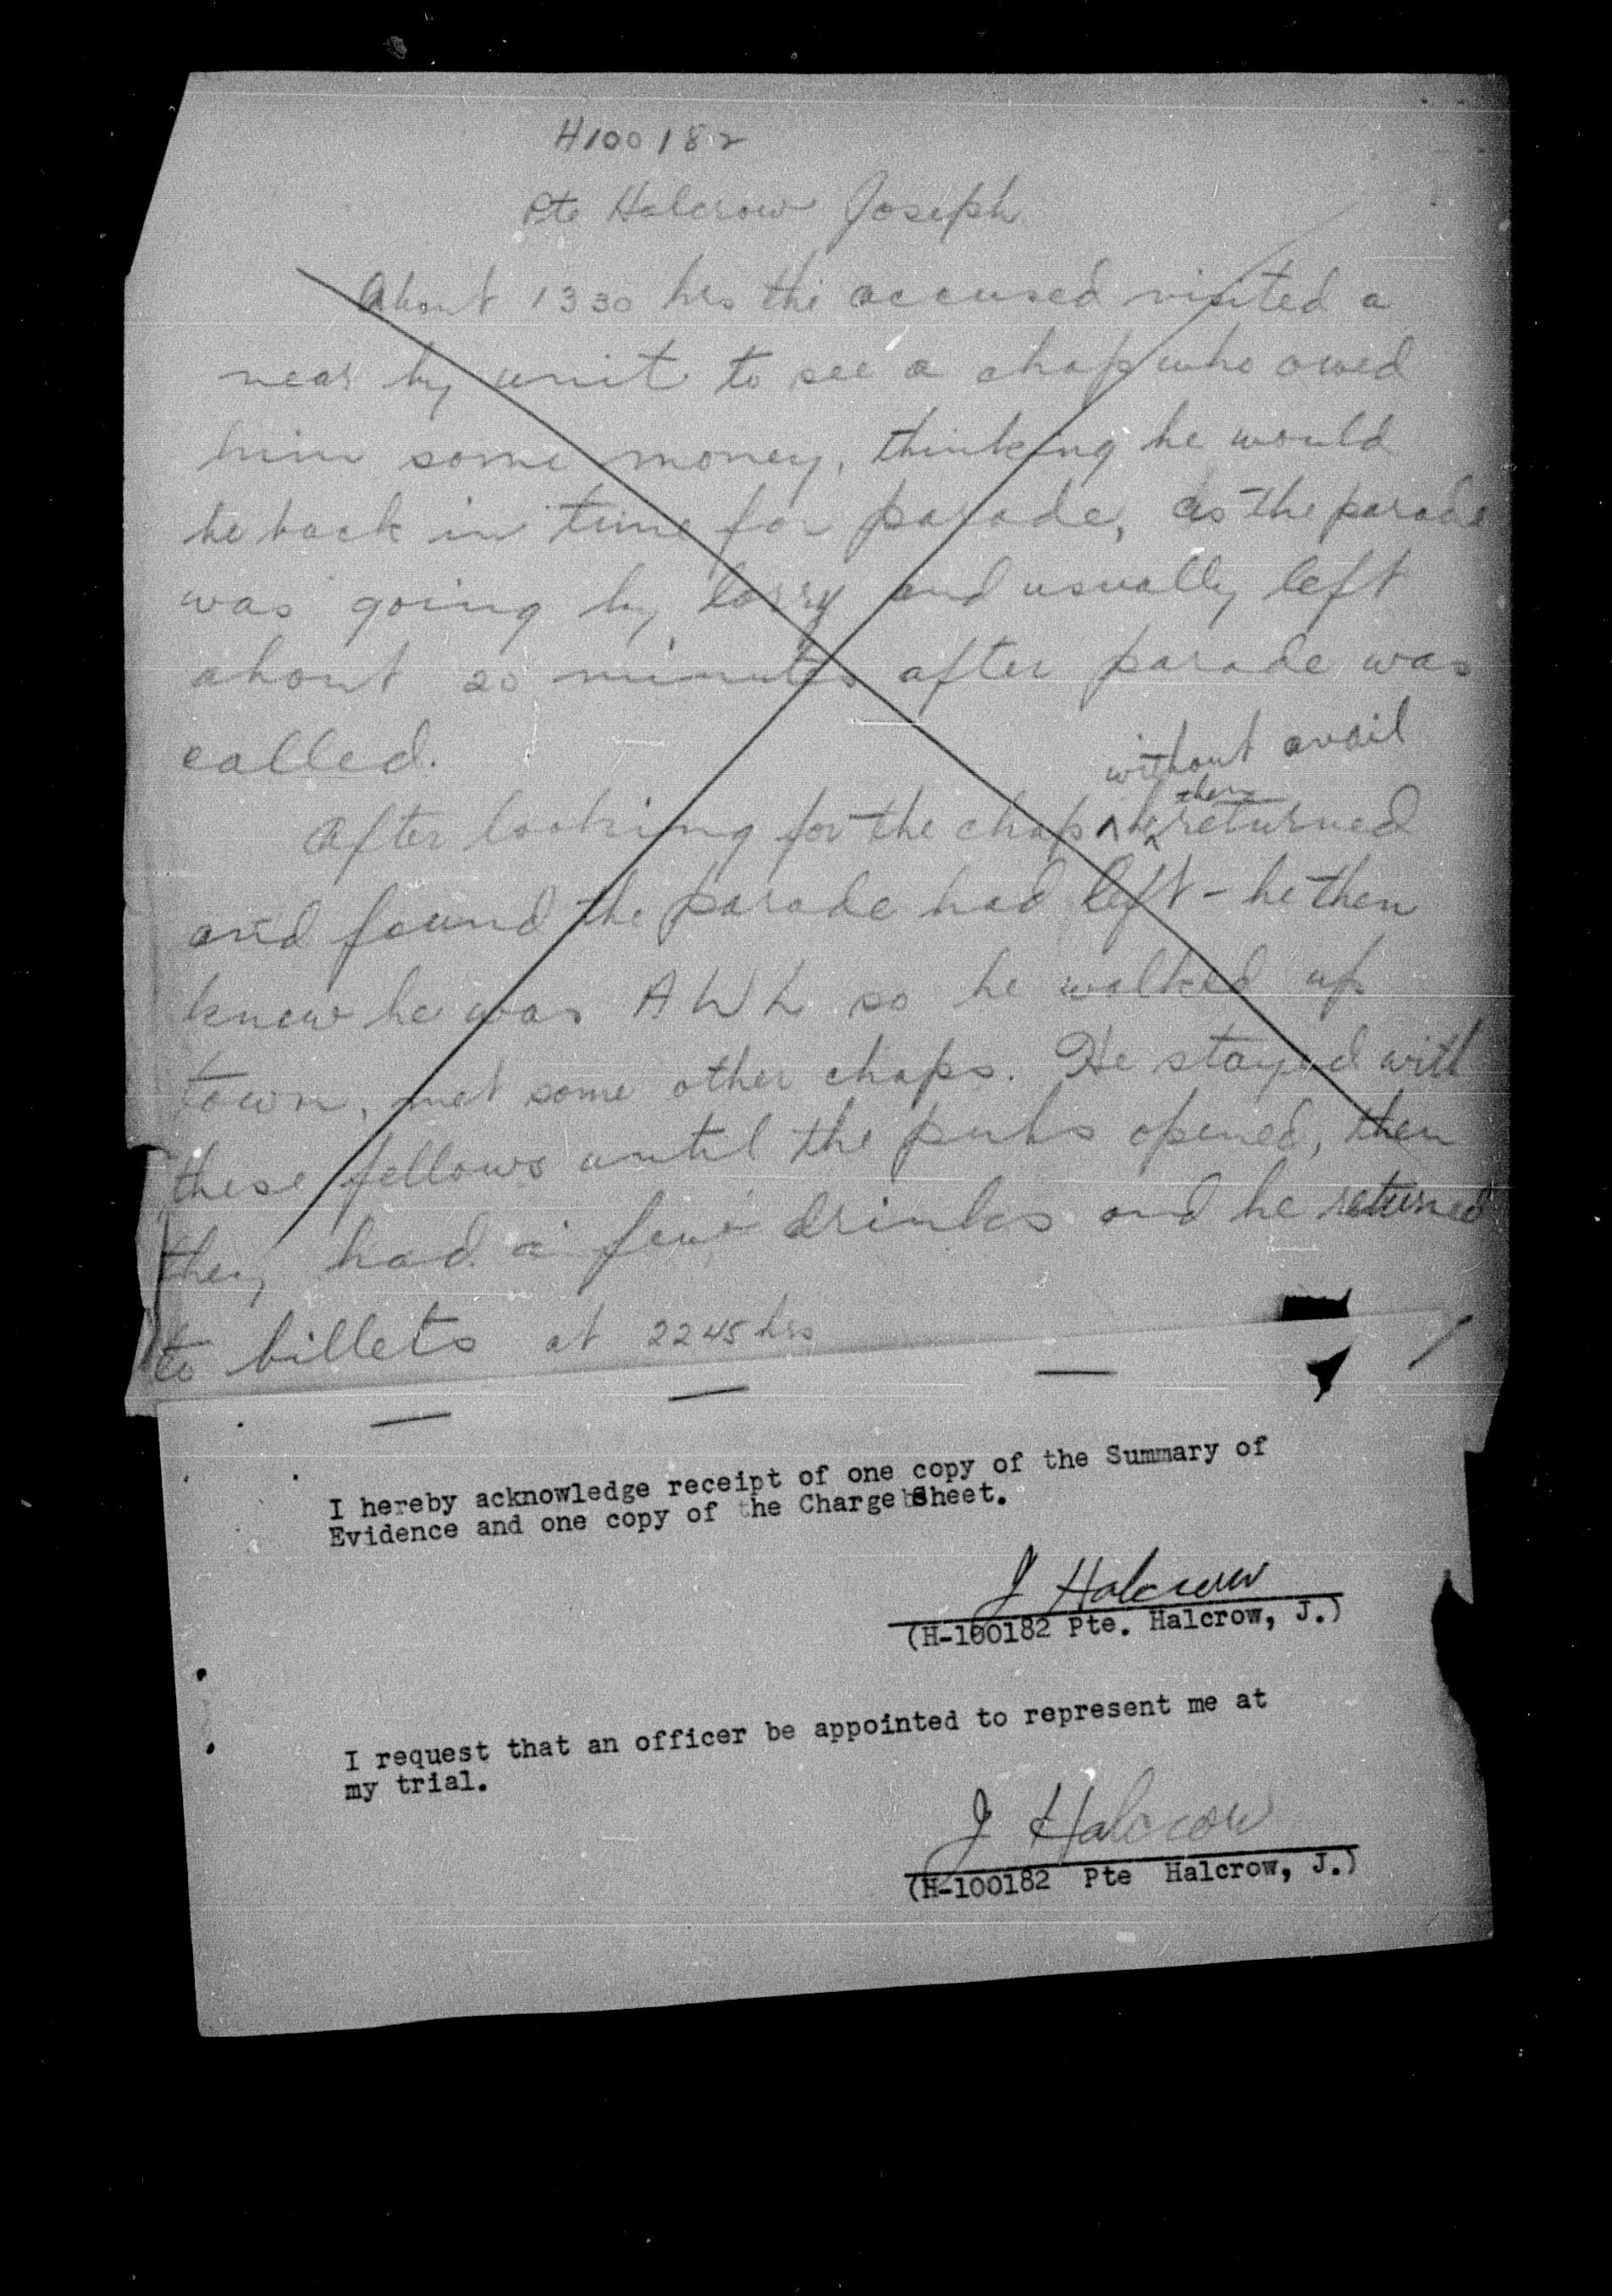 H100182
Pte Halcrow Joseph
About 1330 hrs the accused visited a
near by unit to see a chap who owed
him some money, thinking he would
be back in time for parade, as the parade
was going by lorry and usually left
about 20 minutes after parade was
called.
without avail
then
After looking for the chap he returned
and found the parade had left - he then
knew he was AWL so he walked up
town, met some other chaps. He stayed with
these fellows until the pubs opened, then
they had a few drinks and he returned
to billets at 2245 hrs
I hereby acknowledge receipt of one copy of the Summary of
Evidence and one copy of the Charge Sheet.
J Halcrow
(H-100182 Pte. Halcrow, J.)
I request that an officer be appointed to represent me at
my trial.
J Halcrow
(H-100182 Pte Halcrow, J.)